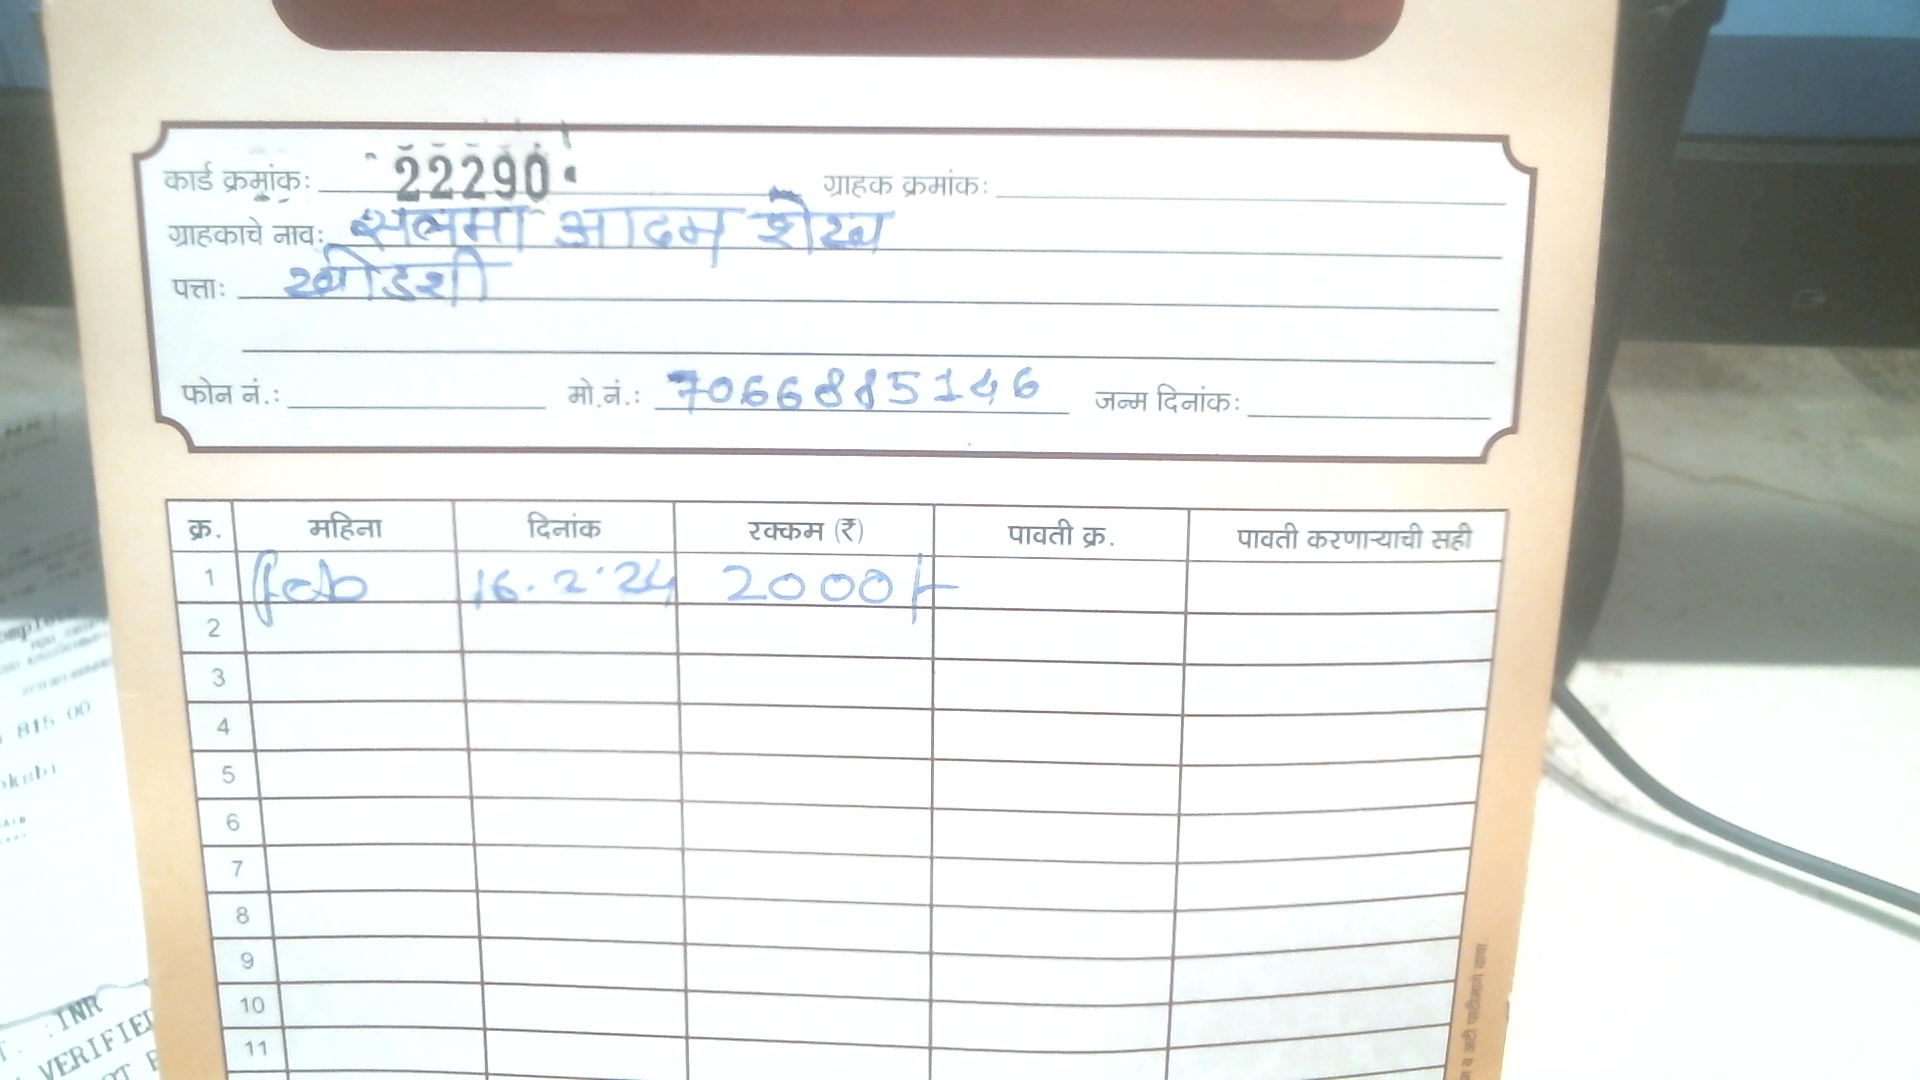 कार्ड क्रमांक: 22290 ग्राहक क्रमांक:
ग्राहकाचे नाव: सलमा आदम शेख
पत्ता: खोडशी
फोन नं.: मो.नं.: 7066885146 जन्म दिनांक:
क्र. महिना दिनांक रक्कम (₹) पावती क्र. पावती करणाऱ्याची सही
1 feb 16.2.24 2000/-
2
3
4
5
6
7
8
9
10
11
815 00
INR
VERIFIED